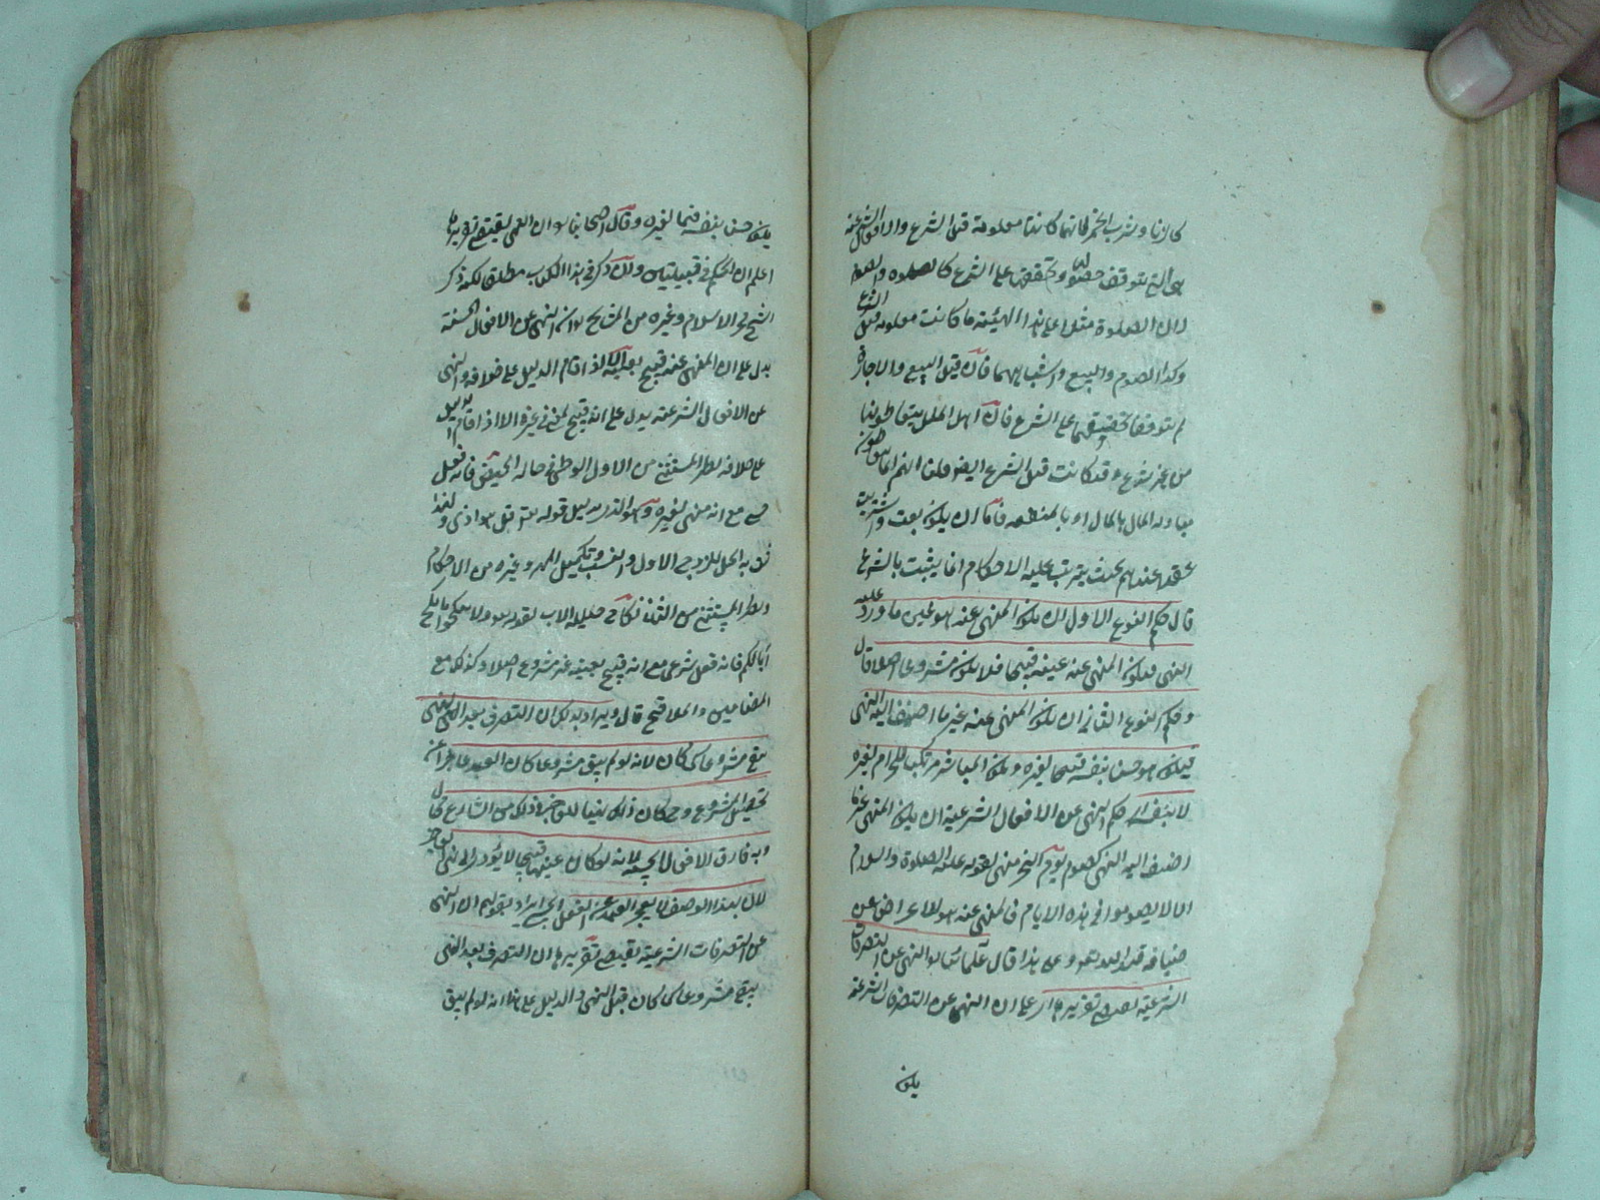 كالزنا وشرب الخمر فانها كانت معلومة قبل الشرع والافعال الشرعية
هى التى تتوقف حصولها وتحققها على الشرع كالصلوة والصوم
لان الصلوة مثلا على هذا الهيئة ما كانت معلومة قبل الشرع
وكذا الصوم والبيع واشباههما فان قيل البيع والاجارة
لم تتوقفا تحققهما على الشرع فان اهل الملل يتعاطونها
من غير شرع وقد كانت قبل الشرع ايضا قلنا انهم انما يتعاطون
مبادلة المال بالمال او بالمنفعة فاما ان يكون بعت واشتريت
عقدا عندهم بحيث يترتب عليه الاحكام انما يثبت بالشرع
قال حكم النوع الاول ان يكون المنهى عنه هو عين ما ورد عليه
النهى فيكون المنهى عنه عينه قبيحا فلا يكون مشروعا اصلا قال
وحكم النوع الثانى ان يكون المنهى عنه غير ما اضيف اليه النهى
فيكون هو حسن بنفسه قبيحا لغيره ويكون المباشر مرتكبا للحرام لغيره
لا بنفسه حكم النهى عن الافعال الشرعية ان يكون المنهى عنه غير ما
اضيف اليه النهى كصوم يوم النحر منهى لقوله عليه الصلوة والسلام
الا لا تصوموا فى هذه الايام فالمنهى عنه هو الاعراض عن
ضيافة الله تعالى وعلى هذا قال علمائنا النهى عن التصرفات
الشرعية يقتضى تقريرها اى على ان النهى عن التصرفات الشرعية
يكون
يكون حسن بنفسه قبيحا لغيره وقال اصحابنا ان النهى يقتضى تقريرها
اعلم ان الحكم فى قبيلتين وان ذكر فى هذا الكتاب مطلقا لكنه ذكر
الشيخ فخر الاسلام وغيره من المشايخ ان النهى عن الافعال الحسية
يدل على ان المنهى عنه قبيح بعينه الا اذا قام الدليل على خلافه والنهى
عن الافعال الشرعية يدل على انه قبيح لمعنى فى غيره الا اذا قام الدليل
على خلافه نظير المستثنى من الاول الوطى فى حالة الحيض فانه فعل
حسى مع انه منهى لغيره وهو الاذى بدليل قوله تعالى قل هو اذى ولهذا
يثبت به الحل للزوج الاول والنسب وتكميل المهر وغيره من الاحكام
ونظير المستثنى من الثانى نكاح حليلة الاب لقوله تعالى ولا تنكحوا ما نكح
آباؤكم فانه فعل شرعى مع انه قبيح بعينه غير مشروع اصلا وكذلك بيع
المضامين والملاقيح قال ويراد بذلك ان التصرف بعد النهى
يبقى مشروعا كما كان لانه لو لم يبق مشروعا كان العبد عاجزا عن
تحصيل المشروع وح كان ذلك نفيا للعاجز وذلك من الشارع محال
وبه فارق الافعال الحسية لانه لو كان عينها قبيحا لا يؤدى الى نهى العاجز
لان بهذا الوصف لا يعجز العبد عن الفعل الحسى اى يراد بقولهم ان النهى
عن التصرفات الشرعية يقتضى تقريرها ان التصرف بعد النهى
يبقى مشروعا كما كان قبل النهى والدليل على هذا انه لو لم يبق